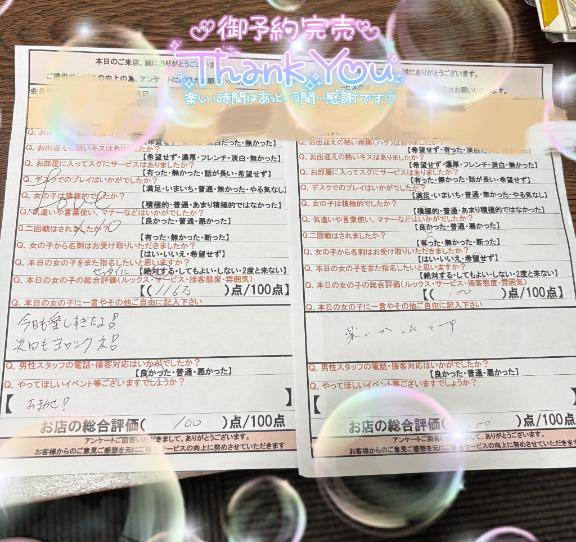 御予約完売
Thank You
楽しい時間はあっという間…感謝です♡
本日のご来店、誠にありがとうご
Q. お出迎えの熱いキスはありましたか？
【希望せず・濃厚・フレンチ・淡白・無かった】
Q. お部屋に入ってスグにサービスはありましたか？
【有った・無かった・話が長い・希望せず】
Q. デスクでのプレイはいかがでしたか？
【満足・いまいち・普通・無かった・やる気なし】
Q. 女の子は積極的でしたか？
【積極的・普通・あまり積極的ではなかった】
Q. 気遣いや言葉使い、マナーなどはいかがでしたか？
【良かった・普通・悪かった】
Q. 二回戦はされましたか？
【有った・無かった・断った】
Q. 女の子から名刺はお受け取りいただきましたか？
【はい・いいえ・希望せず】
Q. 本日の女の子をまた指名したいと思いますか？
【絶対する・してもよい・しない・2度と来ない】
Q. 本日の女の子の総合評価(ルックス・サービス・接客態度・雰囲気)
【( )点/100点】
Q. 本日の女の子に一言やその他ご自由に記入下さい
今日も愛しすぎたよ!
次回もヨロシクネ!
Q. 男性スタッフの電話・接客対応はいかがでしたか？
【良かった・普通・悪かった】
Q. やってほしいイベント等ございますでしょうか？
【 おまかせ!
お店の総合評価( 100 )点/100点
アンケートご回答いただきまして、ありがとうございます。
お客様からのご意見ご感想を元にサービスの向上に努めさせていただきます
誠にありがとうございます。
Q. お出迎えの熱いキスはありましたか？
【希望せず・濃厚・フレンチ・淡白・無かった】
Q. お部屋に入ってスグにサービスはありましたか？
【有った・無かった・話が長い・希望せず】
Q. デスクでのプレイはいかがでしたか？
【満足・いまいち・普通・無かった・やる気なし】
Q. 女の子は積極的でしたか？
【積極的・普通・あまり積極的ではなかった】
Q. 気遣いや言葉使い、マナーなどはいかがでしたか？
【良かった・普通・悪かった】
Q. 二回戦はされましたか？
【有った・無かった・断った】
Q. 女の子から名刺はお受け取りいただきましたか？
【はい・いいえ・希望せず】
Q. 本日の女の子をまた指名したいと思いますか？
【絶対する・してもよい・しない・2度と来ない】
Q. 本日の女の子の総合評価(ルックス・サービス・接客態度・雰囲気)
【( )点/100点】
Q. 本日の女の子に一言やその他ご自由に記入下さい
Q. 男性スタッフの電話・接客対応はいかがでしたか？
【良かった・普通・悪かった】
Q. やってほしいイベント等ございますでしょうか？
お店の総合評価( )点/100点
ありがとうございます。
お客様からのご意見ご感想を元にサービスの向上に努めさせていただきます